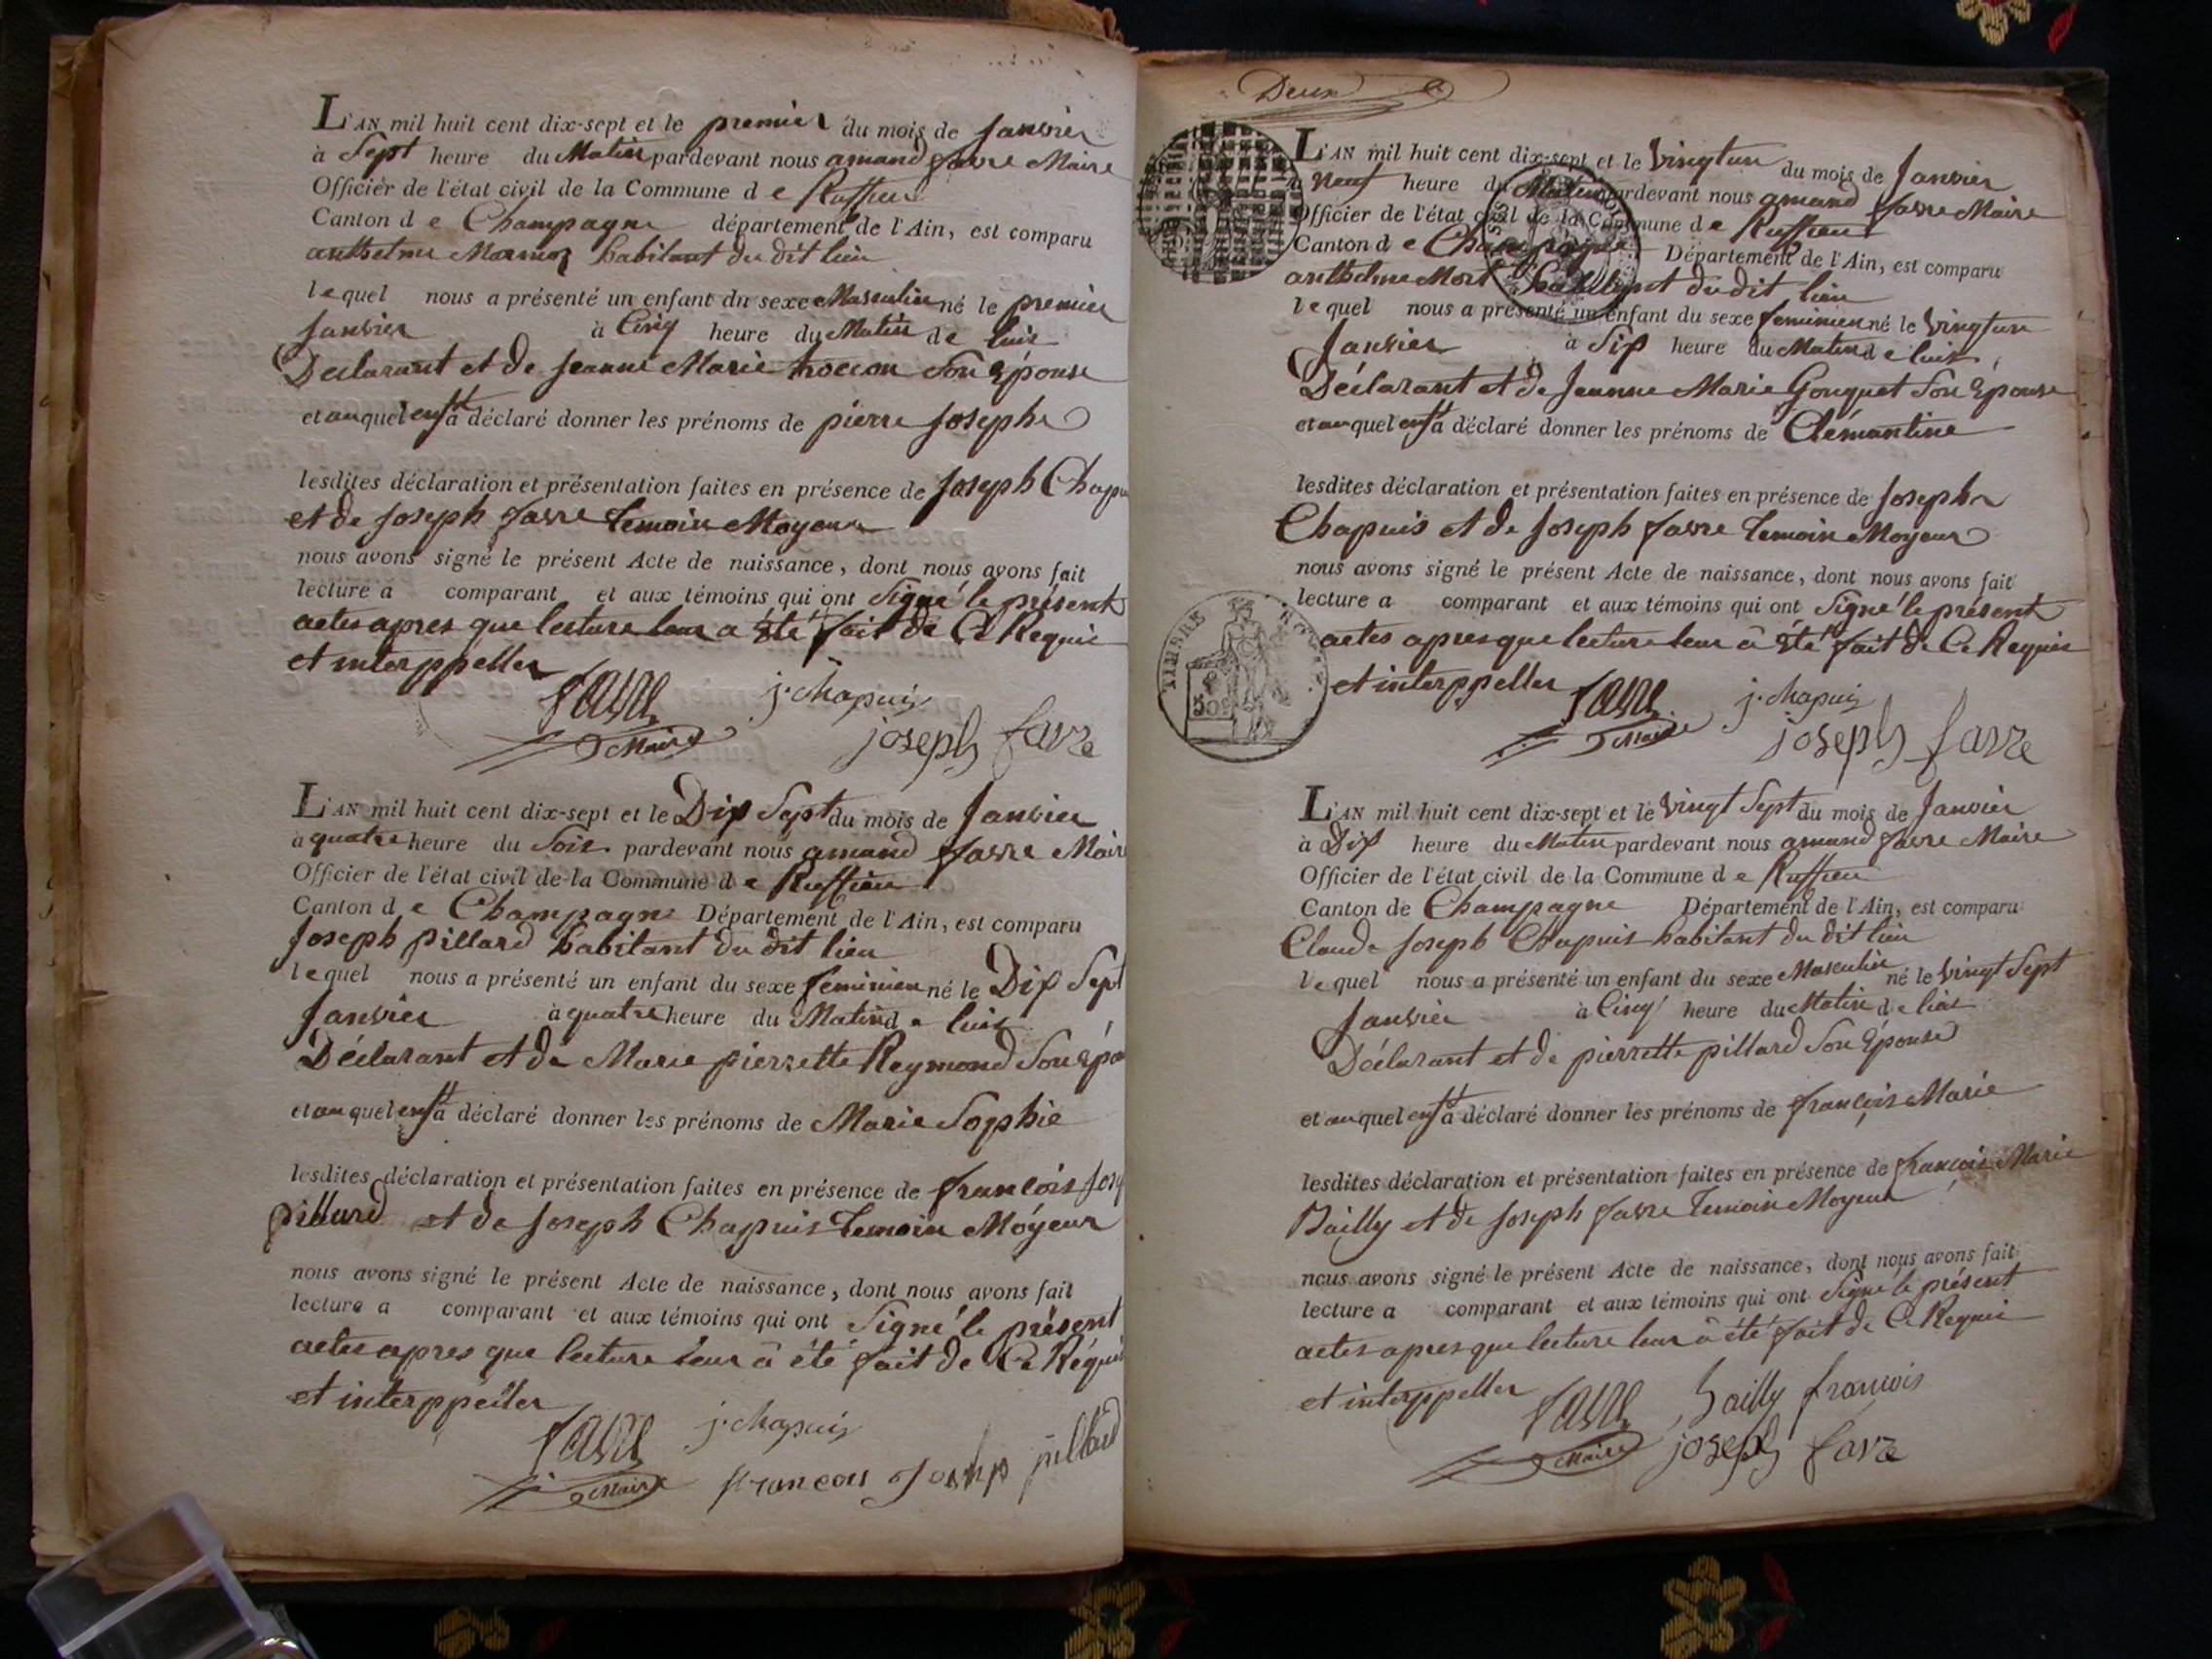 L'AN mil huit cent dix-sept et le premier du mois de Janvier
à Sept heure du Matin pardevant nous amand favre Maire
Officier de l'état civil de la Commune d e Ruffieu
Canton d e Champagne département de l'Ain, est comparu
anthelme habitant du dit lieu
lequel nous a présenté un enfant du sexe Masculin né le premier
Janvier à Cinq heure du Matin de luis
Déclarant et de Jeanne Marie Son Épouse
et auquel enft a déclaré donner les prénoms de pierre Joseph
lesdites déclaration et présentation faites en présence de Joseph Chapu
et de Joseph favre temoin Moyeur
nous avons signé le présent Acte de naissance, dont nous avons fait
lecture a comparant et aux témoins qui ont Signé le présent
actes apres que lecture leur a été fait de Ce Requis
et interppeller
favre j. chapuis
Maire joseph favre
L'AN mil huit cent dix-sept et le Dix Sept du mois de Janvier
à quatre heure du Soir pardevant nous amand favre Mair
Officier de l'état civil de la Commune d e Ruffieu
Canton d e Champagne Département de l'Ain, est comparu
Joseph pillard habitant du dit lieu
lequel nous a présenté un enfant du sexe feminien né le Dix Sept
Janvier à quatre heure du Matin d e luis
Déclarant et de Marie pierrette Reymond Son Épou
et auquel enft a déclaré donner les prénoms de Marie Sophie
lesdites déclaration et présentation faites en présence de francois Jose
pillard et de Joseph Chapuis temoin Moyeur
nous avons signé le présent Acte de naissance, dont nous avons fait
lecture a comparant et aux témoins qui ont Signé le présent
actes apres que lecture leur à été fait de Ce Réquis
et interppeller
favre j. chapuis
Maire francois Joseph pillard
Deux
L'AN mil huit cent dix-sept et le vingt un du mois de Janvier
à Neuf heure du Matin pardevant nous amand favre Maire
Officier de l'état civil de la Commune d e Ruffieu
Canton d e Champagne Département de l'Ain, est comparu
anthelme Mort habitant du dit lieu
lequel nous a présenté un enfant du sexe feminien né le vingt un
Janvier à Six heure du Matin d e luis
Déclarant et de Jeanne Marie Gouguet Son Épouse
et auquel enft a déclaré donner les prénoms de Clémantine
lesdites déclaration et présentation faites en présence de Joseph
Chapuis et de Joseph favre temoin Moyeur
nous avons signé le présent Acte de naissance, dont nous avons fait
lecture a comparant et aux témoins qui ont Signé le présent
TIMBRE
50c
actes apres que lecture leur à été fait de Ce Requis
et interppeller
favre j. chapuis
Maire joseph favre
L'AN mil huit cent dix-sept et le vingt Sept du mois de Janvier
à Dix heure du Matin pardevant nous amand favre Maire
Officier de l'état civil de la Commune d e Ruffieu
Canton de Champagne Département de l'Ain, est comparu
Claude Joseph Chapuis habitant du dit lieu
lequel nous a présenté un enfant du sexe Masculin né le vingt Sept
Janvier à Cinq heure du Matin d e luis
Déclarant et de pierrette pillard Son Épouse
et auquel enft a déclaré donner les prénoms de françois Marie
lesdites déclaration et présentation faites en présence de françois Marie
Bailly et de Joseph favre temoin Moyeur
nous avons signé le présent Acte de naissance, dont nous avons fait
lecture a comparant et aux témoins qui ont Signé le présent
actes apres que lecture leur à été fait de Ce Requis
et interppeller
favre bailly francois
Maire joseph favre